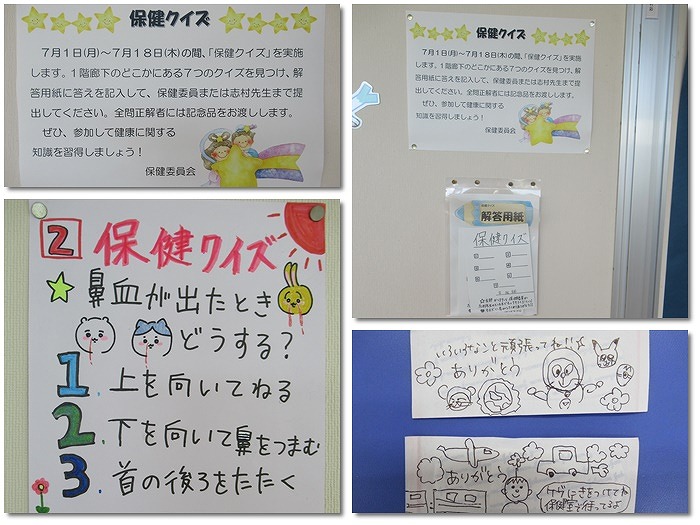 保健クイズ
7月1日(月)～7月18日(木)の間、「保健クイズ」を実施
します。1階廊下のどこかにある7つのクイズを見つけ、解
答用紙に答えを記入して、保健委員または志村先生まで提
出してください。全問正解者には記念品をお渡しします。
ぜひ、参加して健康に関する
知識を習得しましょう！
保健委員会
保健クイズ
7月1日(月)～7月18日(木)の間、「保健クイズ」を実施
します。1階廊下のどこかにある7つのクイズを見つけ、解
答用紙に答えを記入して、保健委員または志村先生まで提
出してください。全問正解者には記念品をお渡しします。
ぜひ、参加して健康に関する
知識を習得しましょう！
保健委員会
保健クイズ
解答用紙
保健クイズ
2 保健クイズ
鼻血が出たとき
どうする？
1. 上を向いてねる
2. 下を向いて鼻をつまむ
3. 首の後ろをたたく
いろいろなこと頑張ってね!!
ありがとう
ありがとう
ケガにきをつけてね
保健室で待ってるよ